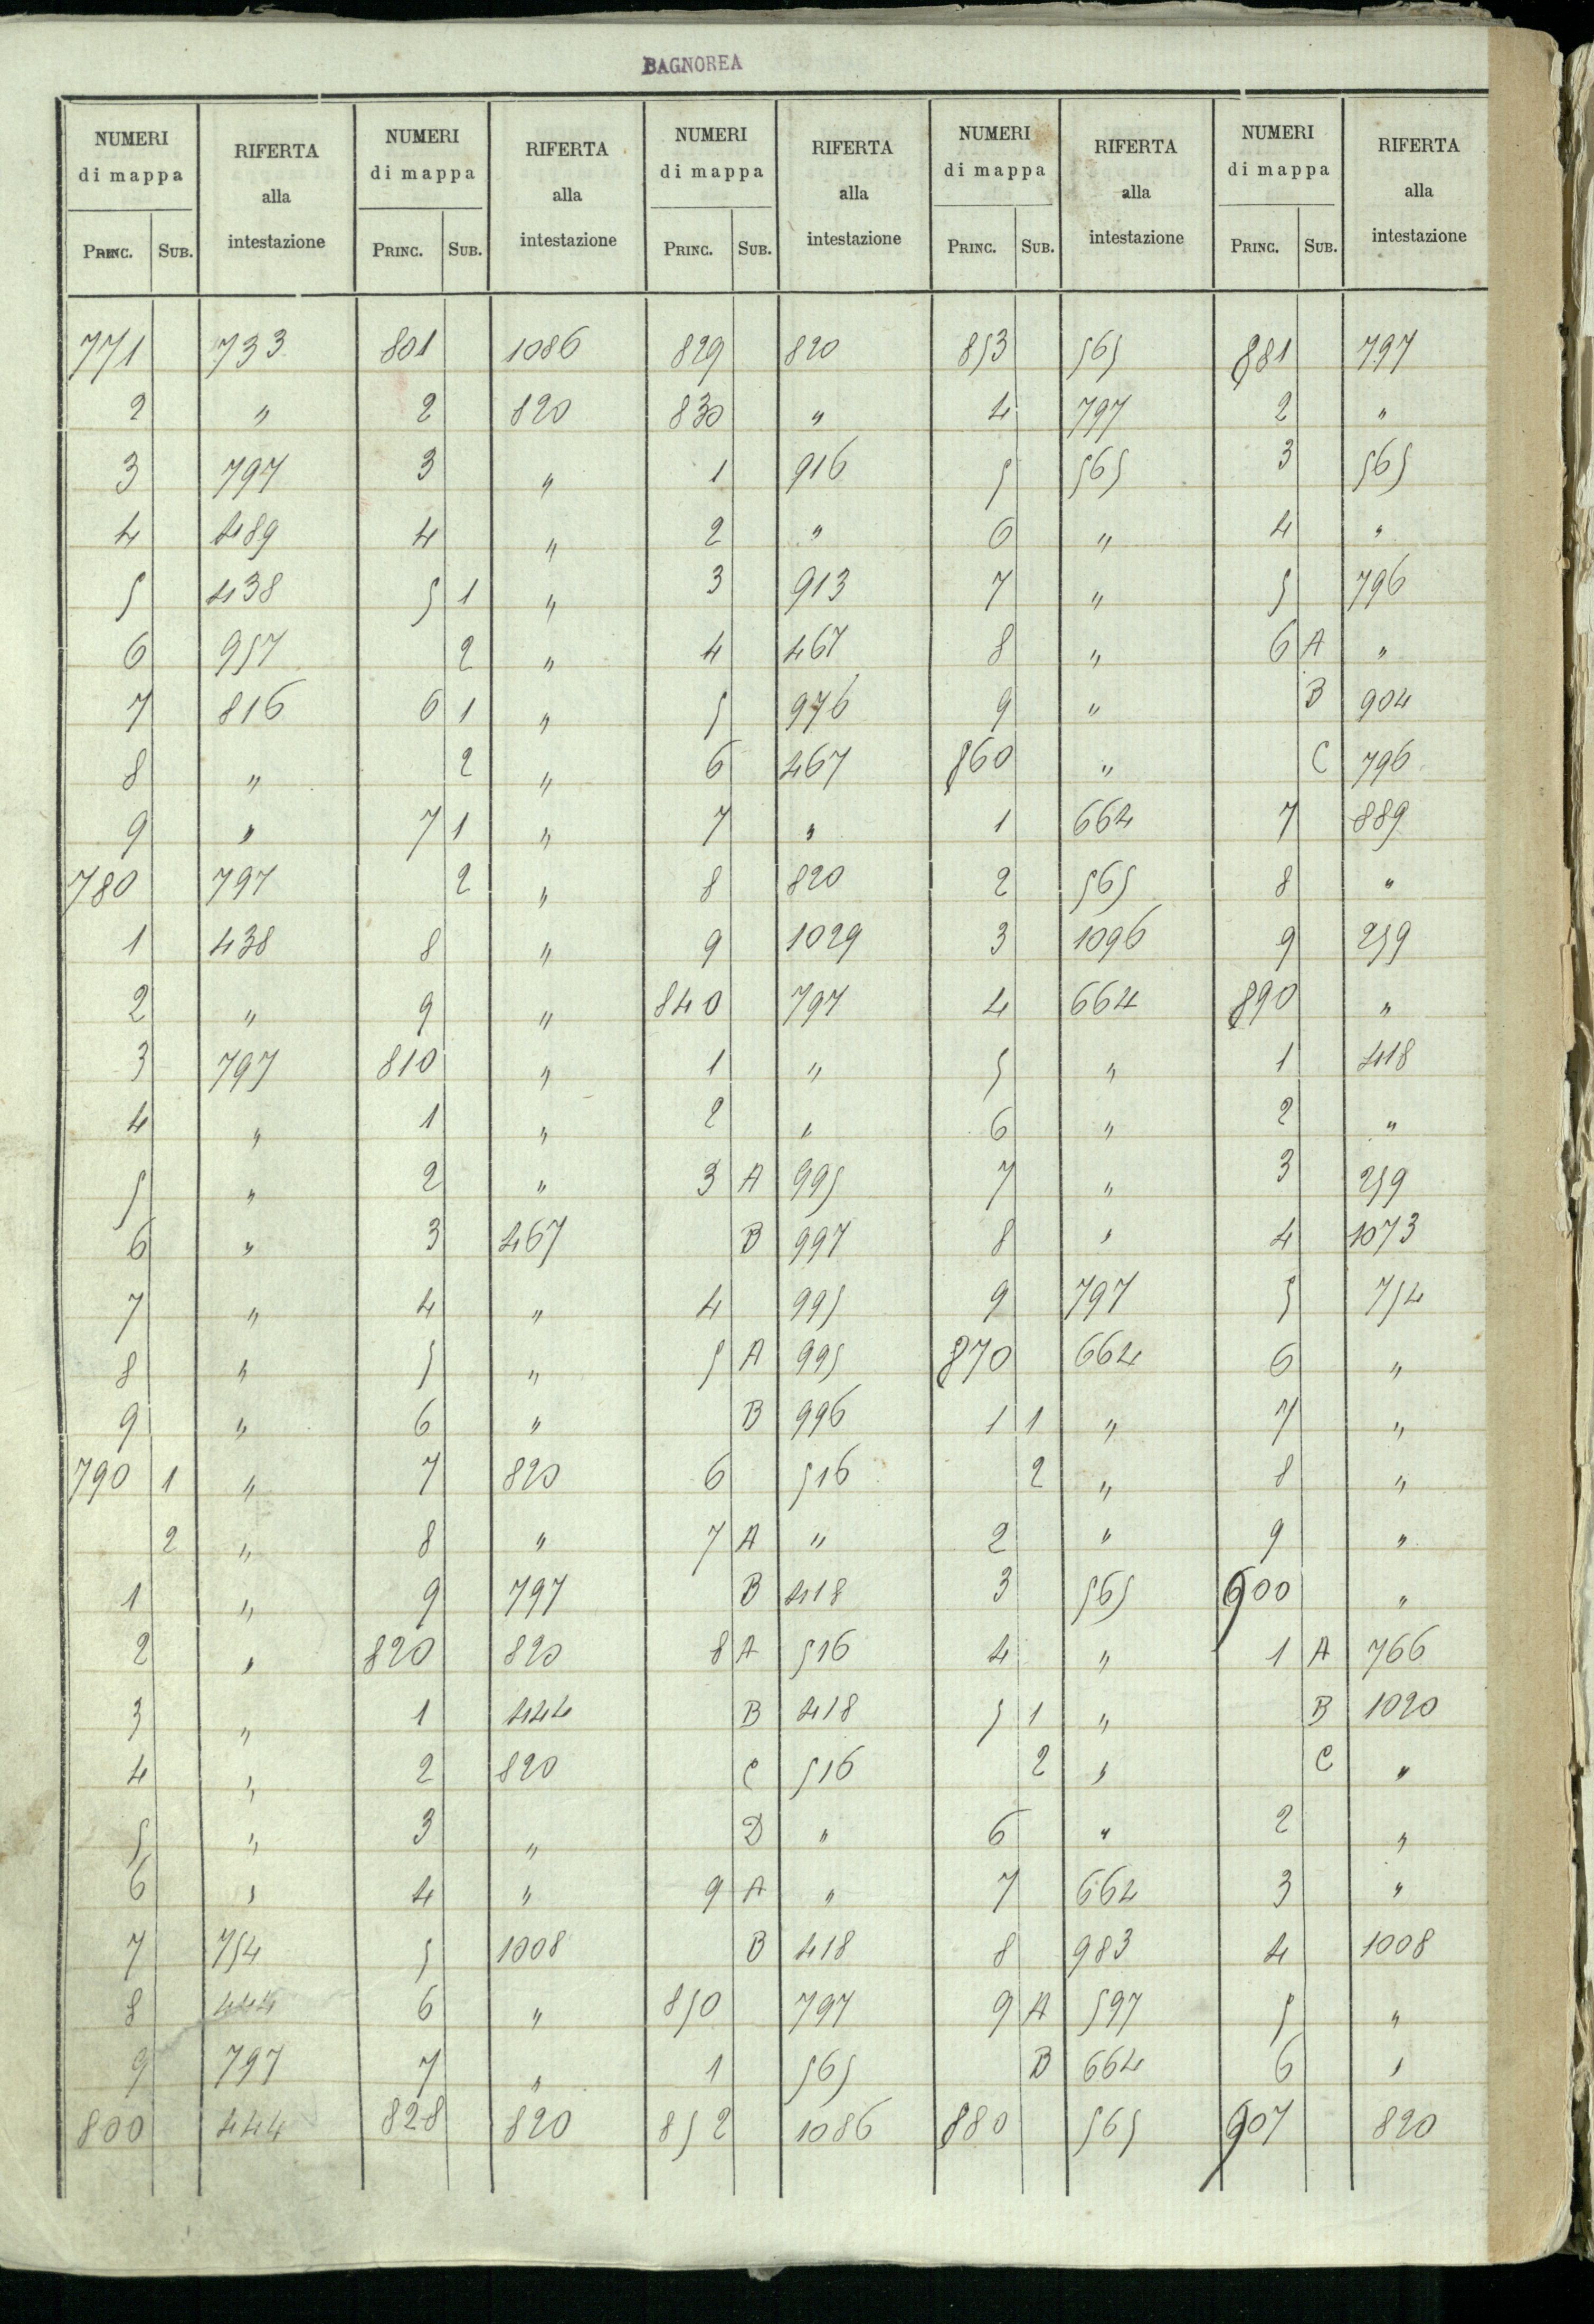 BAGNOREA
NUMERI di mappa RIFERTA alla intestazione NUMERI di mappa RIFERTA alla intestazione NUMERI di mappa RIFERTA alla intestazione NUMERI di mappa RIFERTA alla intestazione NUMERI di mappa RIFERTA alla intestazione
PRINC. SUB. PRINC. SUB. PRINC. SUB. PRINC. SUB. PRINC. SUB.
771 733 801 1086 829 820 853 565 881 797
2 " 2 820 830 " 4 797 2 "
3 797 3 " 1 916 5 565 3 565
4 489 4 " 2 " 6 " 4 "
5 438 5 1 " 3 913 7 " 5 796
6 957 2 " 4 467 8 " 6 A "
7 816 6 1 " 5 976 9 " B 904
8 " 2 " 6 467 860 " C 796
9 " 7 1 " 7 " 1 664 7 889
780 797 2 " 8 820 2 565 8 "
1 438 8 " 9 1029 3 1096 9 259
2 " 9 " 840 797 4 664 890 "
3 797 810 " 1 " 5 " 1 418
4 " 1 " 2 " 6 " 2 "
5 " 2 " 3 A 995 7 " 3 259
6 " 3 467 B 997 8 " 4 1073
7 " 4 " 4 995 9 797 5 754
8 " 5 " 5 A 995 870 664 6 "
9 " 6 " B 996 1 1 " 7 "
790 1 " 7 820 6 516 2 " 8 "
2 " 8 " 7 A " 2 " 9 "
1 " 9 797 B 418 3 565 900 "
2 " 820 820 8 A 516 4 " 1 A 766
3 " 1 444 B 418 5 1 " B 1020
4 " 2 820 C 516 2 " C "
5 " 3 " D " 6 " 2 "
6 " 4 " 9 A " 7 664 3 "
7 754 5 1008 B 418 8 983 4 1008
8 444 6 " 850 797 9 A 597 5 "
9 797 7 " 1 565 B 664 6 "
800 444 828 820 852 1086 880 565 907 820